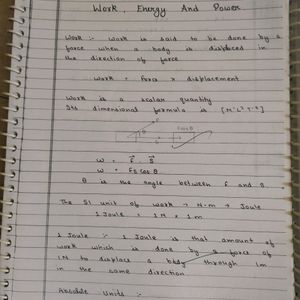 Work, Energy And Power
Work :- Work is said to be done by a
force when a body is displaced in
the direction of force
Work = Force × displacement
Work is a scalar quantity
Its dimensional formula is [M¹L²T⁻²]
F
θ
F cos θ
W = F⃗ . S⃗
W = FS cos θ
θ is the angle between F and S.
The SI unit of work → N-m → Joule
1 Joule = 1N × 1m
1 Joule :- 1 Joule is that amount of
work which is done by a force of
1N to displace a body through 1m
in the same direction
Absolute Units :-